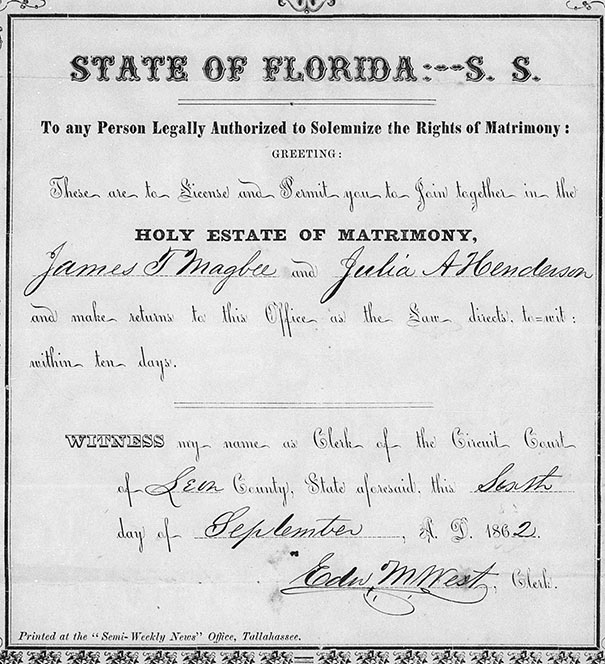 STATE OF FLORIDA:--S. S.
To any Person Legally Authorized to Solemnize the Rights of Matrimony:
GREETING:
These are to License and Permit you to Join together in the
HOLY ESTATE OF MATRIMONY,
James T Magbee and Julia A Henderson
and make returns to this Office as the Law directs, to=wit:
within ten days.
WITNESS my name as Clerk of the Circuit Court
of Leon County, State aforesaid, this Sixth
day of September, A. D. 1862.
Edw. M West, Clerk.
Printed at the "Semi-Weekly News" Office, Tallahassee.